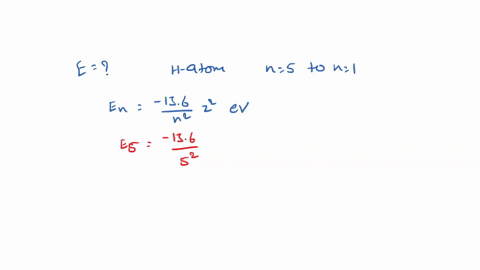 E = ? H-atom n=5 to n=1
En = -13.6/n² z² ev
E5 = -13.6/5²